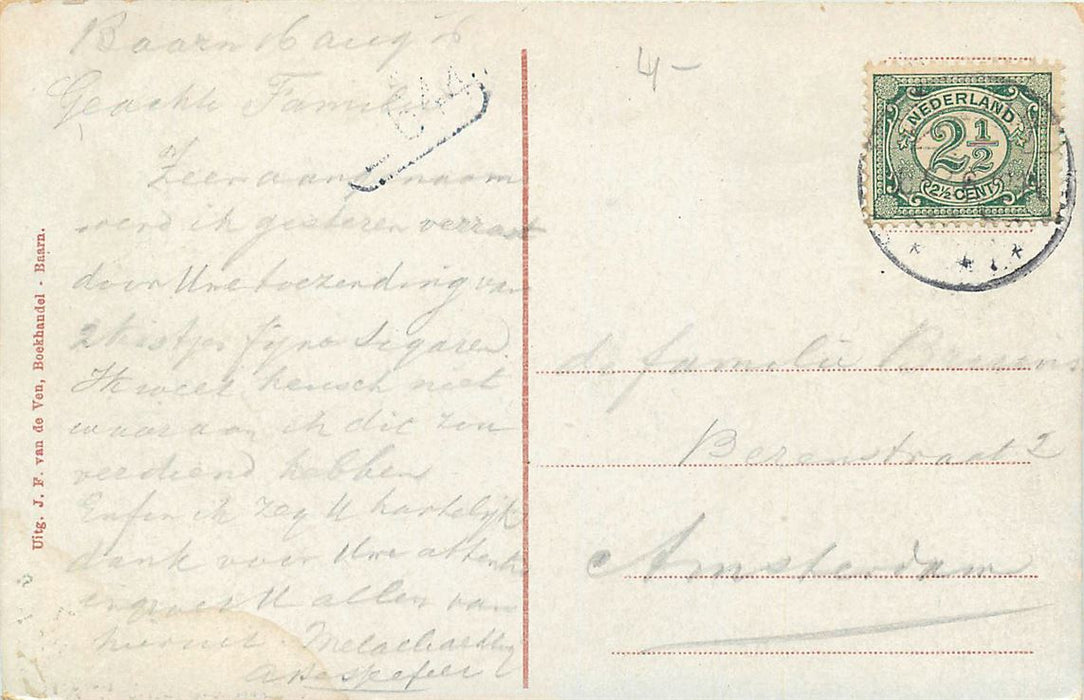 Baarn 16 aug
Geachte Familie
Zeer aangenaam
werd ik gisteren verrast
door Uwe toezending van
2 kistjes fijne sigaren.
Ik weet heusch niet
waaraan ik dit zou
verdiend hebben.
Enfin ik zeg U hartelijk
dank voor Uwe attentie
en groet U allen van
hieruit
Uitg. J. F. van de Ven, Boekhandel - Baarn.
4-
NEDERLAND
2 1/2
2½ CENT
de familie
Berenstraat 2
Amsterdam